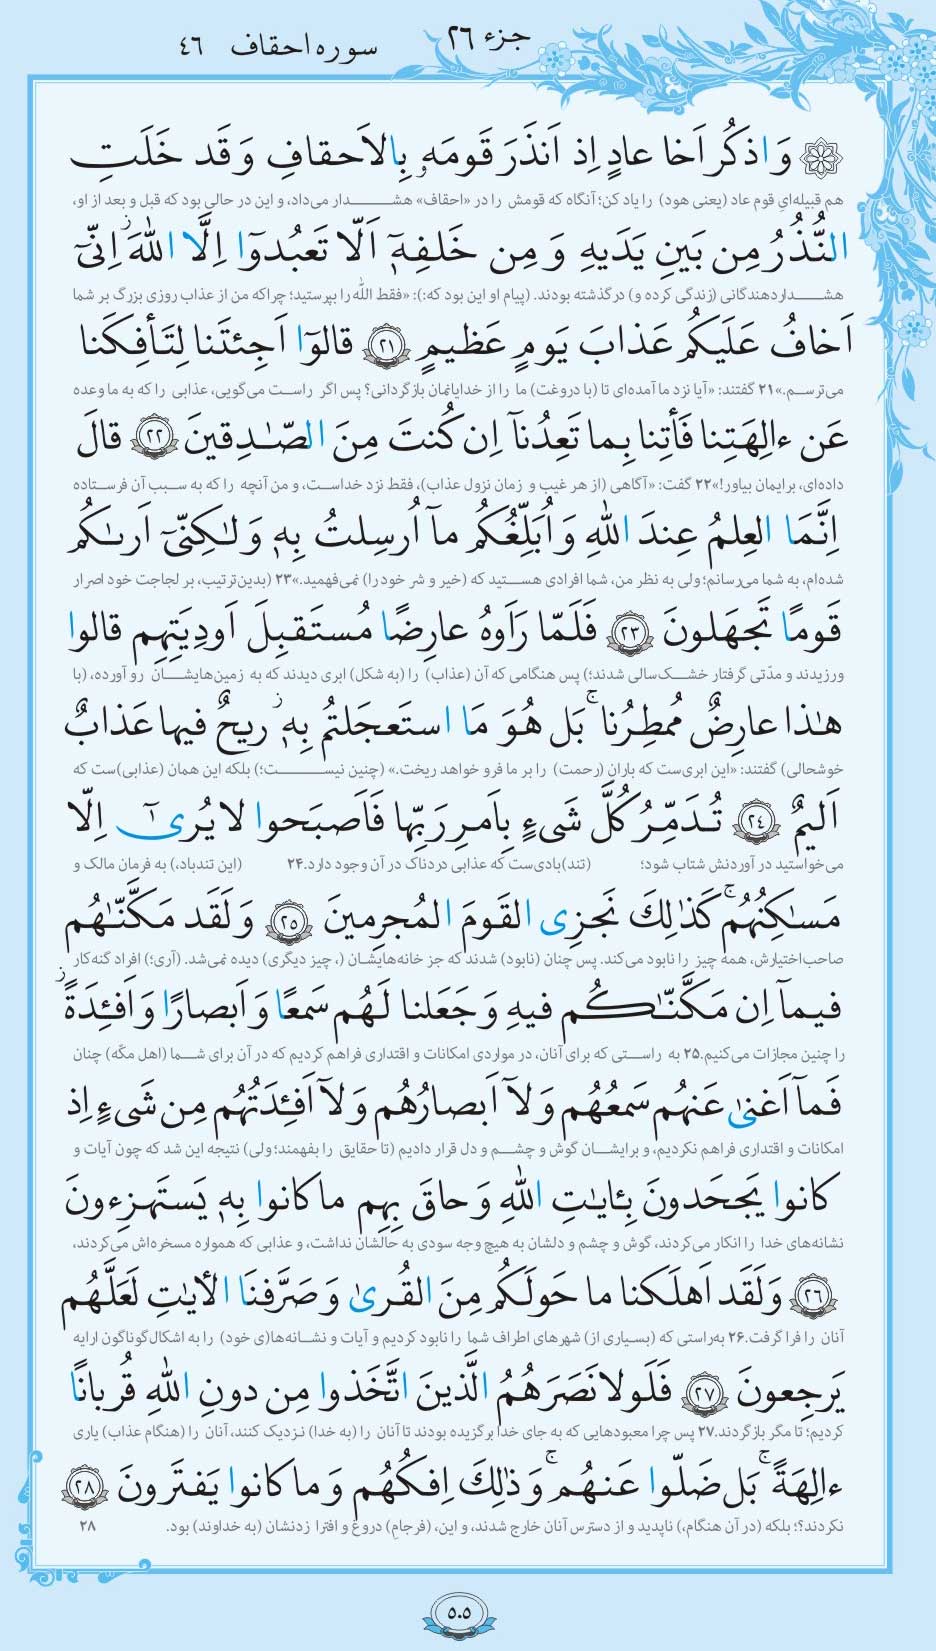 جزء ٢٦
سوره احقاف ٤٦
وَ اذكُر اَخا عادٍ اِذ اَنذَرَ قَومَهٗ بِالاَحقافِ وَ قَد خَلَتِ
هم قبیله‌ایِ قوم عاد (یعنی هود) را یاد کن؛ آنگاه که قومش را در «احقاف» هشدار می‌داد، و این در حالی بود که قبل و بعد از او،
النُّذُرُ مِن بَينِ يَدَيهِ وَ مِن خَلفِهٖٓ اَلّا تَعبُدوٓا اِلَّا اللهَ ز اِنّىٓ
هشداردهندگانی (زندگی کرده و) درگذشته بودند. (پیام او این بود که:): «فقط الله را بپرستید؛ چراکه من از عذاب روزی بزرگ بر شما
اَخافُ عَلَيكُم عَذابَ يَومٍ عَظيمٍ ﴿٢١﴾ قالوٓا اَجِئتَنا لِتَأفِكَنا
می‌ترسم.»۲۱ گفتند: «آیا نزد ما آمده‌ای تا (با دروغت) ما را از خدایانمان بازگردانی؟ پس اگر راست می‌گویی، عذابی را که به ما وعده
عَن ءالِهَتِنا فَأتِنا بِما تَعِدُنآ اِن كُنتَ مِنَ الصّـٰدِقينَ ﴿٢٢﴾ قالَ
داده‌ای، برایمان بیاور!»۲۲ گفت: «آگاهی (از هر غیب و زمان نزول عذاب)، فقط نزد خداست، و من آنچه را که به سبب آن فرستاده
اِنَّمَا العِلمُ عِندَ اللهِ وَ اُبَلِّغُكُم مآ اُرسِلتُ بِهٖ وَ لـٰكِنّىٓ اَرىٰكُم
شده‌ام، به شما می‌رسانم؛ ولی به نظر من، شما افرادی هستید که (خیر و شر خود را) نمی‌فهمید.»۲۳ (بدین‌ترتیب، بر لجاجت خود اصرار
قَومًا تَجهَلونَ ﴿٢٣﴾ فَلَمّا رَاَوهُ عارِضًا مُستَقبِلَ اَودِيَتِهِم قالوا
ورزیدند و مدّتی گرفتار خشک‌سالی شدند؛) پس هنگامی که آن (عذاب) را (به شکل) ابری دیدند که به زمین‌هایشان رو آورده، (با
هـٰذا عارِضٌ مُمطِرُنا ۚ بَل هُوَ مَا استَعجَلتُم بِهٖ ز ريحٌ فيها عَذابٌ
خوشحالی) گفتند: «این ابری‌ست که باران (رحمت) را بر ما فرو خواهد ریخت.» (چنین نیست؛) بلکه این همان (عذابی)ست که
اَليمٌ ﴿٢٤﴾ تُدَمِّرُ كُلَّ شَىءٍ بِاَمرِ رَبِّها فَاَصبَحوا لا يُرىٰٓ اِلّا
می‌خواستید در آوردنش شتاب شود؛ (تند)بادی‌ست که عذابی دردناک در آن وجود دارد.۲۴ (این تندباد،) به فرمان مالک و
مَسـٰكِنُهُم ۚ كَذٰلِكَ نَجزِى القَومَ المُجرِمينَ ﴿٢٥﴾ وَ لَقَد مَكَّنّـٰهُم
صاحب‌اختیارش، همه چیز را نابود می‌کند. پس چنان (نابود) شدند که جز خانه‌هایشان (، چیز دیگری) دیده نمی‌شد. (آری؛) افراد گنه‌کار
فيمآ اِن مَكَّنّـٰكُم فيهِ وَ جَعَلنا لَهُم سَمعًا وَ اَبصارًا وَ اَفئِدَةً ز
را چنین مجازات می‌کنیم.۲۵ به راستی که برای آنان، در مواردی امکانات و اقتداری فراهم کردیم که در آن برای شما (اهل مکّه) چنان
فَمآ اَغنىٰ عَنهُم سَمعُهُم وَ لآ اَبصارُهُم وَ لآ اَفئِدَتُهُم مِن شَىءٍ اِذ
امکانات و اقتداری فراهم نکردیم، و برایشان گوش و چشم و دل قرار دادیم (تا حقایق را بفهمند؛ ولی) نتیجه این شد که چون آیات و
كانوا يَجحَدونَ بِـٔايـٰتِ اللهِ وَ حاقَ بِهِم ما كانوا بِهٖ يَستَهزِءونَ
نشانه‌های خدا را انکار می‌کردند، گوش و چشم و دلشان به هیچ وجه سودی به حالشان نداشت، و عذابی که همواره مسخره‌اش می‌کردند،
﴿٢٦﴾ وَ لَقَد اَهلَكنا ما حَولَكُم مِنَ القُرىٰ وَ صَرَّفنَا الـٔايـٰتِ لَعَلَّهُم
آنان را فرا گرفت.۲۶ به‌راستی که (بسیاری از) شهرهای اطراف شما را نابود کردیم و آیات و نشانه‌ها(ی خود) را به اشکال گوناگون ارایه
يَرجِعونَ ﴿٢٧﴾ فَلَولا نَصَرَهُمُ الَّذينَ اتَّخَذوا مِن دونِ اللهِ قُربانًا
کردیم؛ تا مگر بازگردند.۲۷ پس چرا معبودهایی که به جای خدا برگزیده بودند تا آنان را (به خدا) نزدیک کنند، آنان را (هنگام عذاب) یاری
ءالِهَةً ۚ بَل ضَلّوا عَنهُم ۚ وَ ذٰلِكَ اِفكُهُم وَ ما كانوا يَفتَرونَ ﴿٢٨﴾
نکردند؟؛ بلکه (در آن هنگام،) ناپدید و از دسترس آنان خارج شدند، و این، (فرجامِ) دروغ و افترا زدنشان (به خداوند) بود. ۲۸
٥٠٥